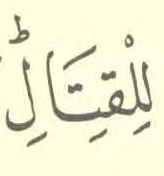 لِلْقِتَالِؕ